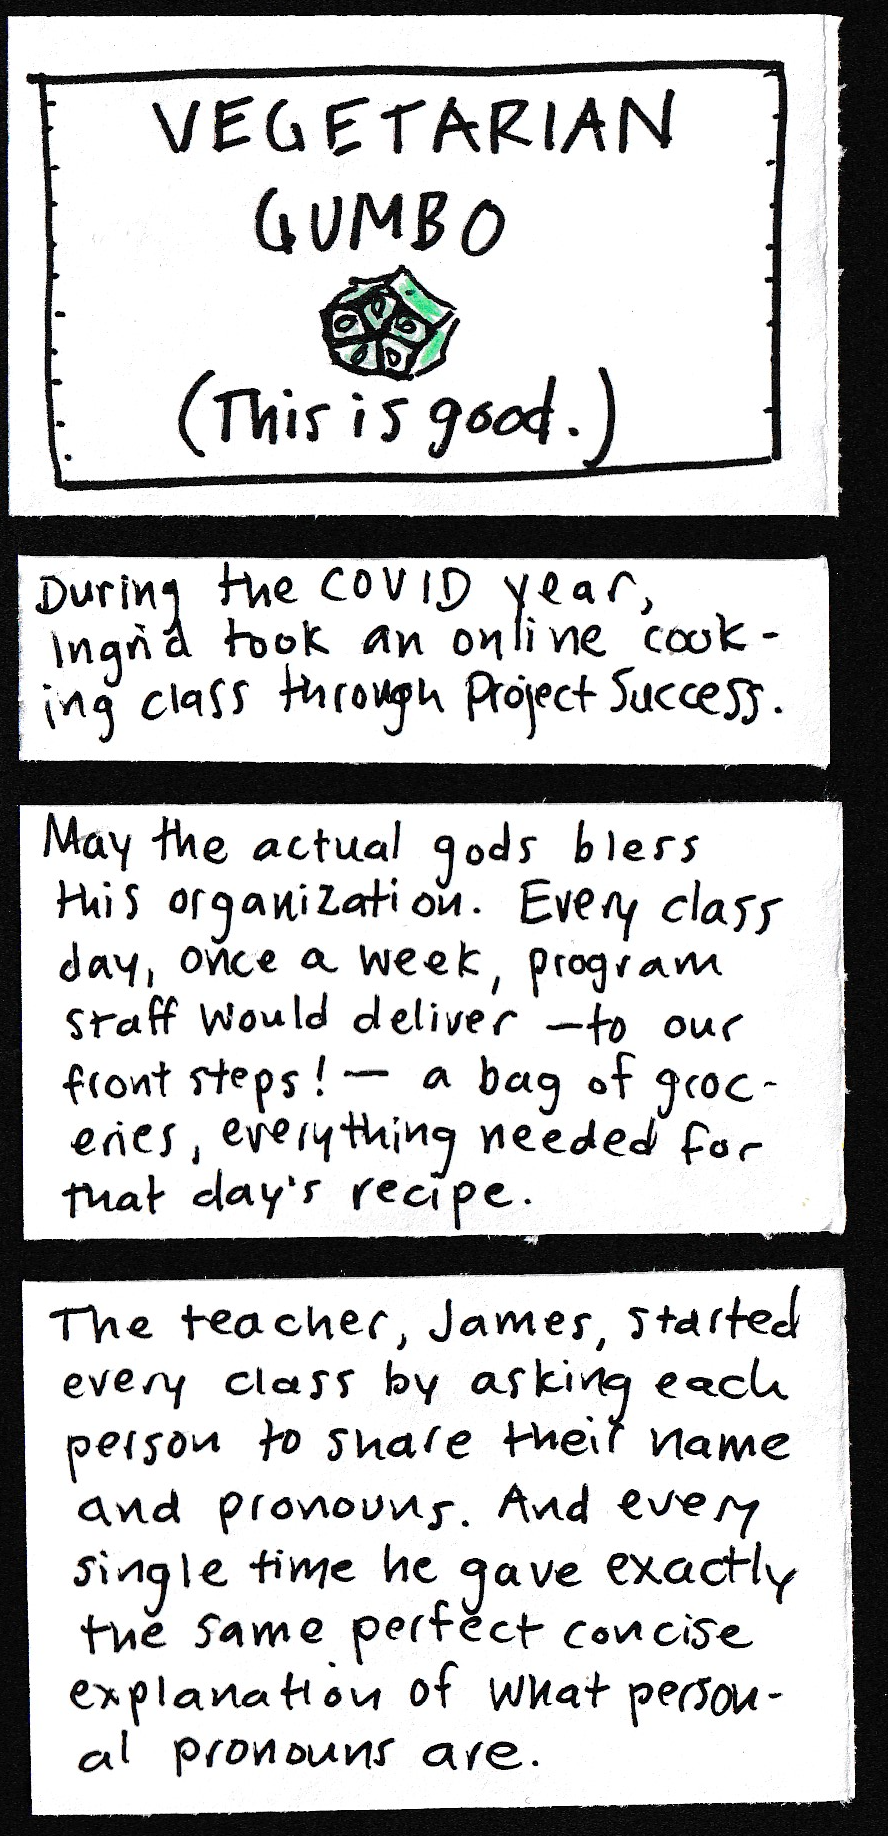 VEGETARIAN
GUMBO
(This is good.)
During the COVID year,
Ingrid took an online cook-
ing class through Project Success.
May the actual gods bless
this organization. Every class
day, once a week, program
staff would deliver —to our
front steps! — a bag of groc-
eries, everything needed for
that day's recipe.
The teacher, James, started
every class by asking each
person to share their name
and pronouns. And every
single time he gave exactly
the same perfect concise
explanation of what person-
al pronouns are.